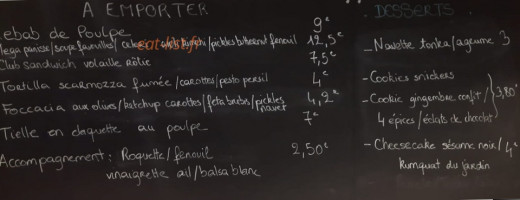 A EMPORTER
ebab de Poulpe 9€
12,5€
Club Sandwich volaille rôtie 7,5€
Tortilla scarmozza fumée/carottes/pesto persil 4€
Foccacia aux olives/ketchup carottes/feta brebis/pickles navet 4,2€
Tielle en claquette au poulpe 7€
Accompagnement: Roquette/fenouil 2,50€
vinaigrette ail/balsa blanc
DESSERTS
- Navette tonka/agrume 3
- Cookies snickers
- Cookie gingembre confit/ 3,80€
4 épices/éclats de chocolat
- Cheesecake sésume noir/ 4€
kumquat du jardin